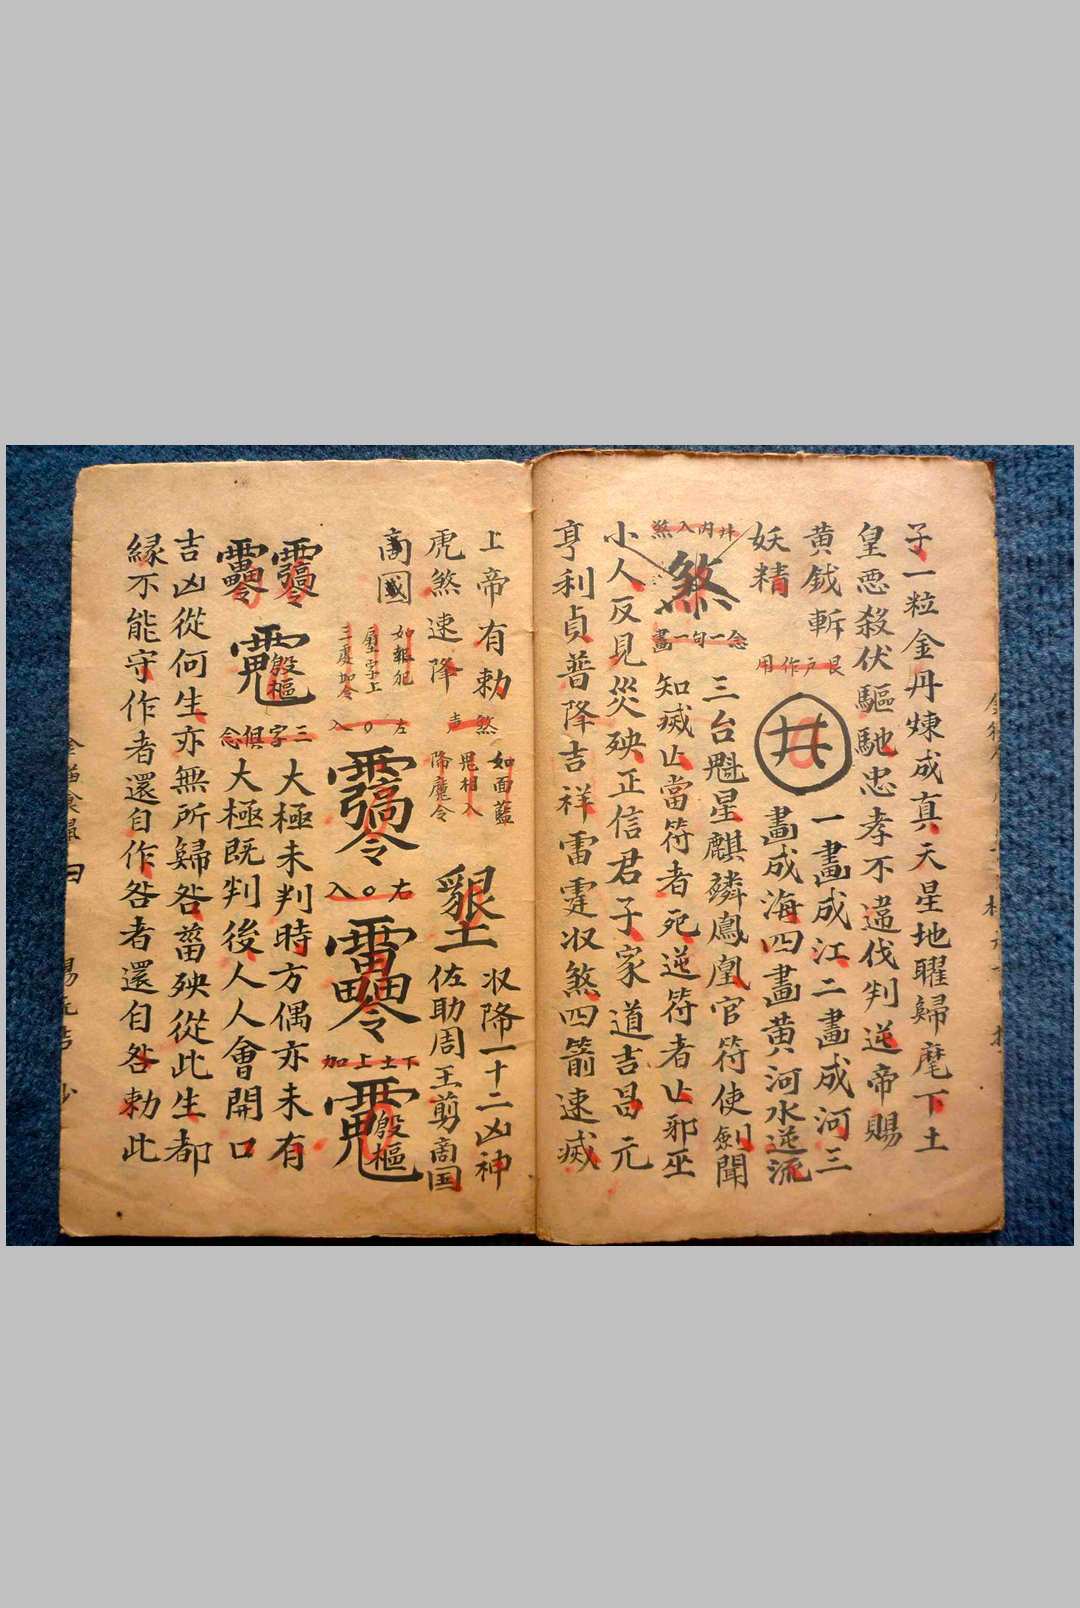 子一粒金丹煉成真天星地曜歸麾下土
皇惡殺伏驅馳忠孝不違伐判逆帝賜
黄鉞斬
妖精
艮戶作用
井
一畫成江二畫成河三
畫成海四畫黄河水逆流
井內入煞
煞
念一句一畫
三台魁星麒麟鳳凰官符使劍聞
知滅亡當符者死逆符者亡邪巫
小人反見災殃正信君子家道吉昌元
亨利貞普降吉祥雷霆收煞四箭速滅
上帝有勅
煞
收降一十二凶神
虎煞速降
降魔令
佐助周王剪商国
商國
如報犯
字上
三處加令
左〇入
右〇入
下土上加
三字俱念
大極未判時方偶亦未有
大極既判後人人會開口
吉凶從何生亦無所歸咎菑殃從此生都
緣不能守作者還自作咎者還自咎勅此